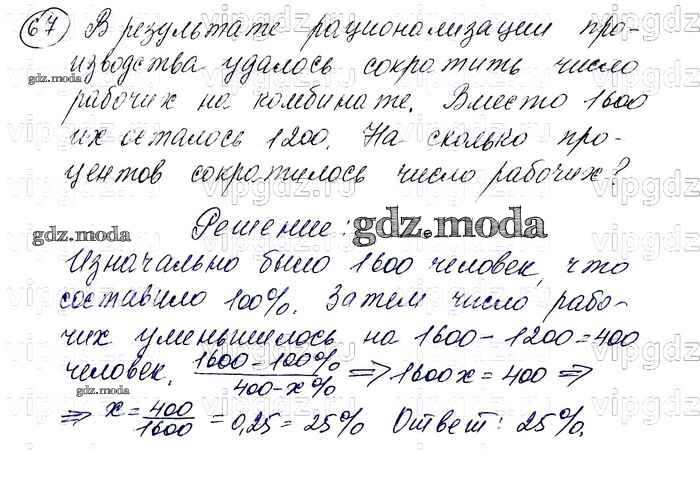 67 В результате рационализации про-
изводства удалось сократить число
gdz.moda
рабочих на комбинате. Вместо 1600
их осталось 1200. На сколько про-
центов сократилось число рабочих?
Решение:
gdz.moda
gdz.moda
Изначально было 1600 человек, что
составило 100%. Затем число рабо-
чих уменьшилось на 1600-1200=400
человек. 1600-100% / 400-x% => 1600x=400 =>
gdz.moda
=> x=400/1600=0,25=25% Ответ: 25%.